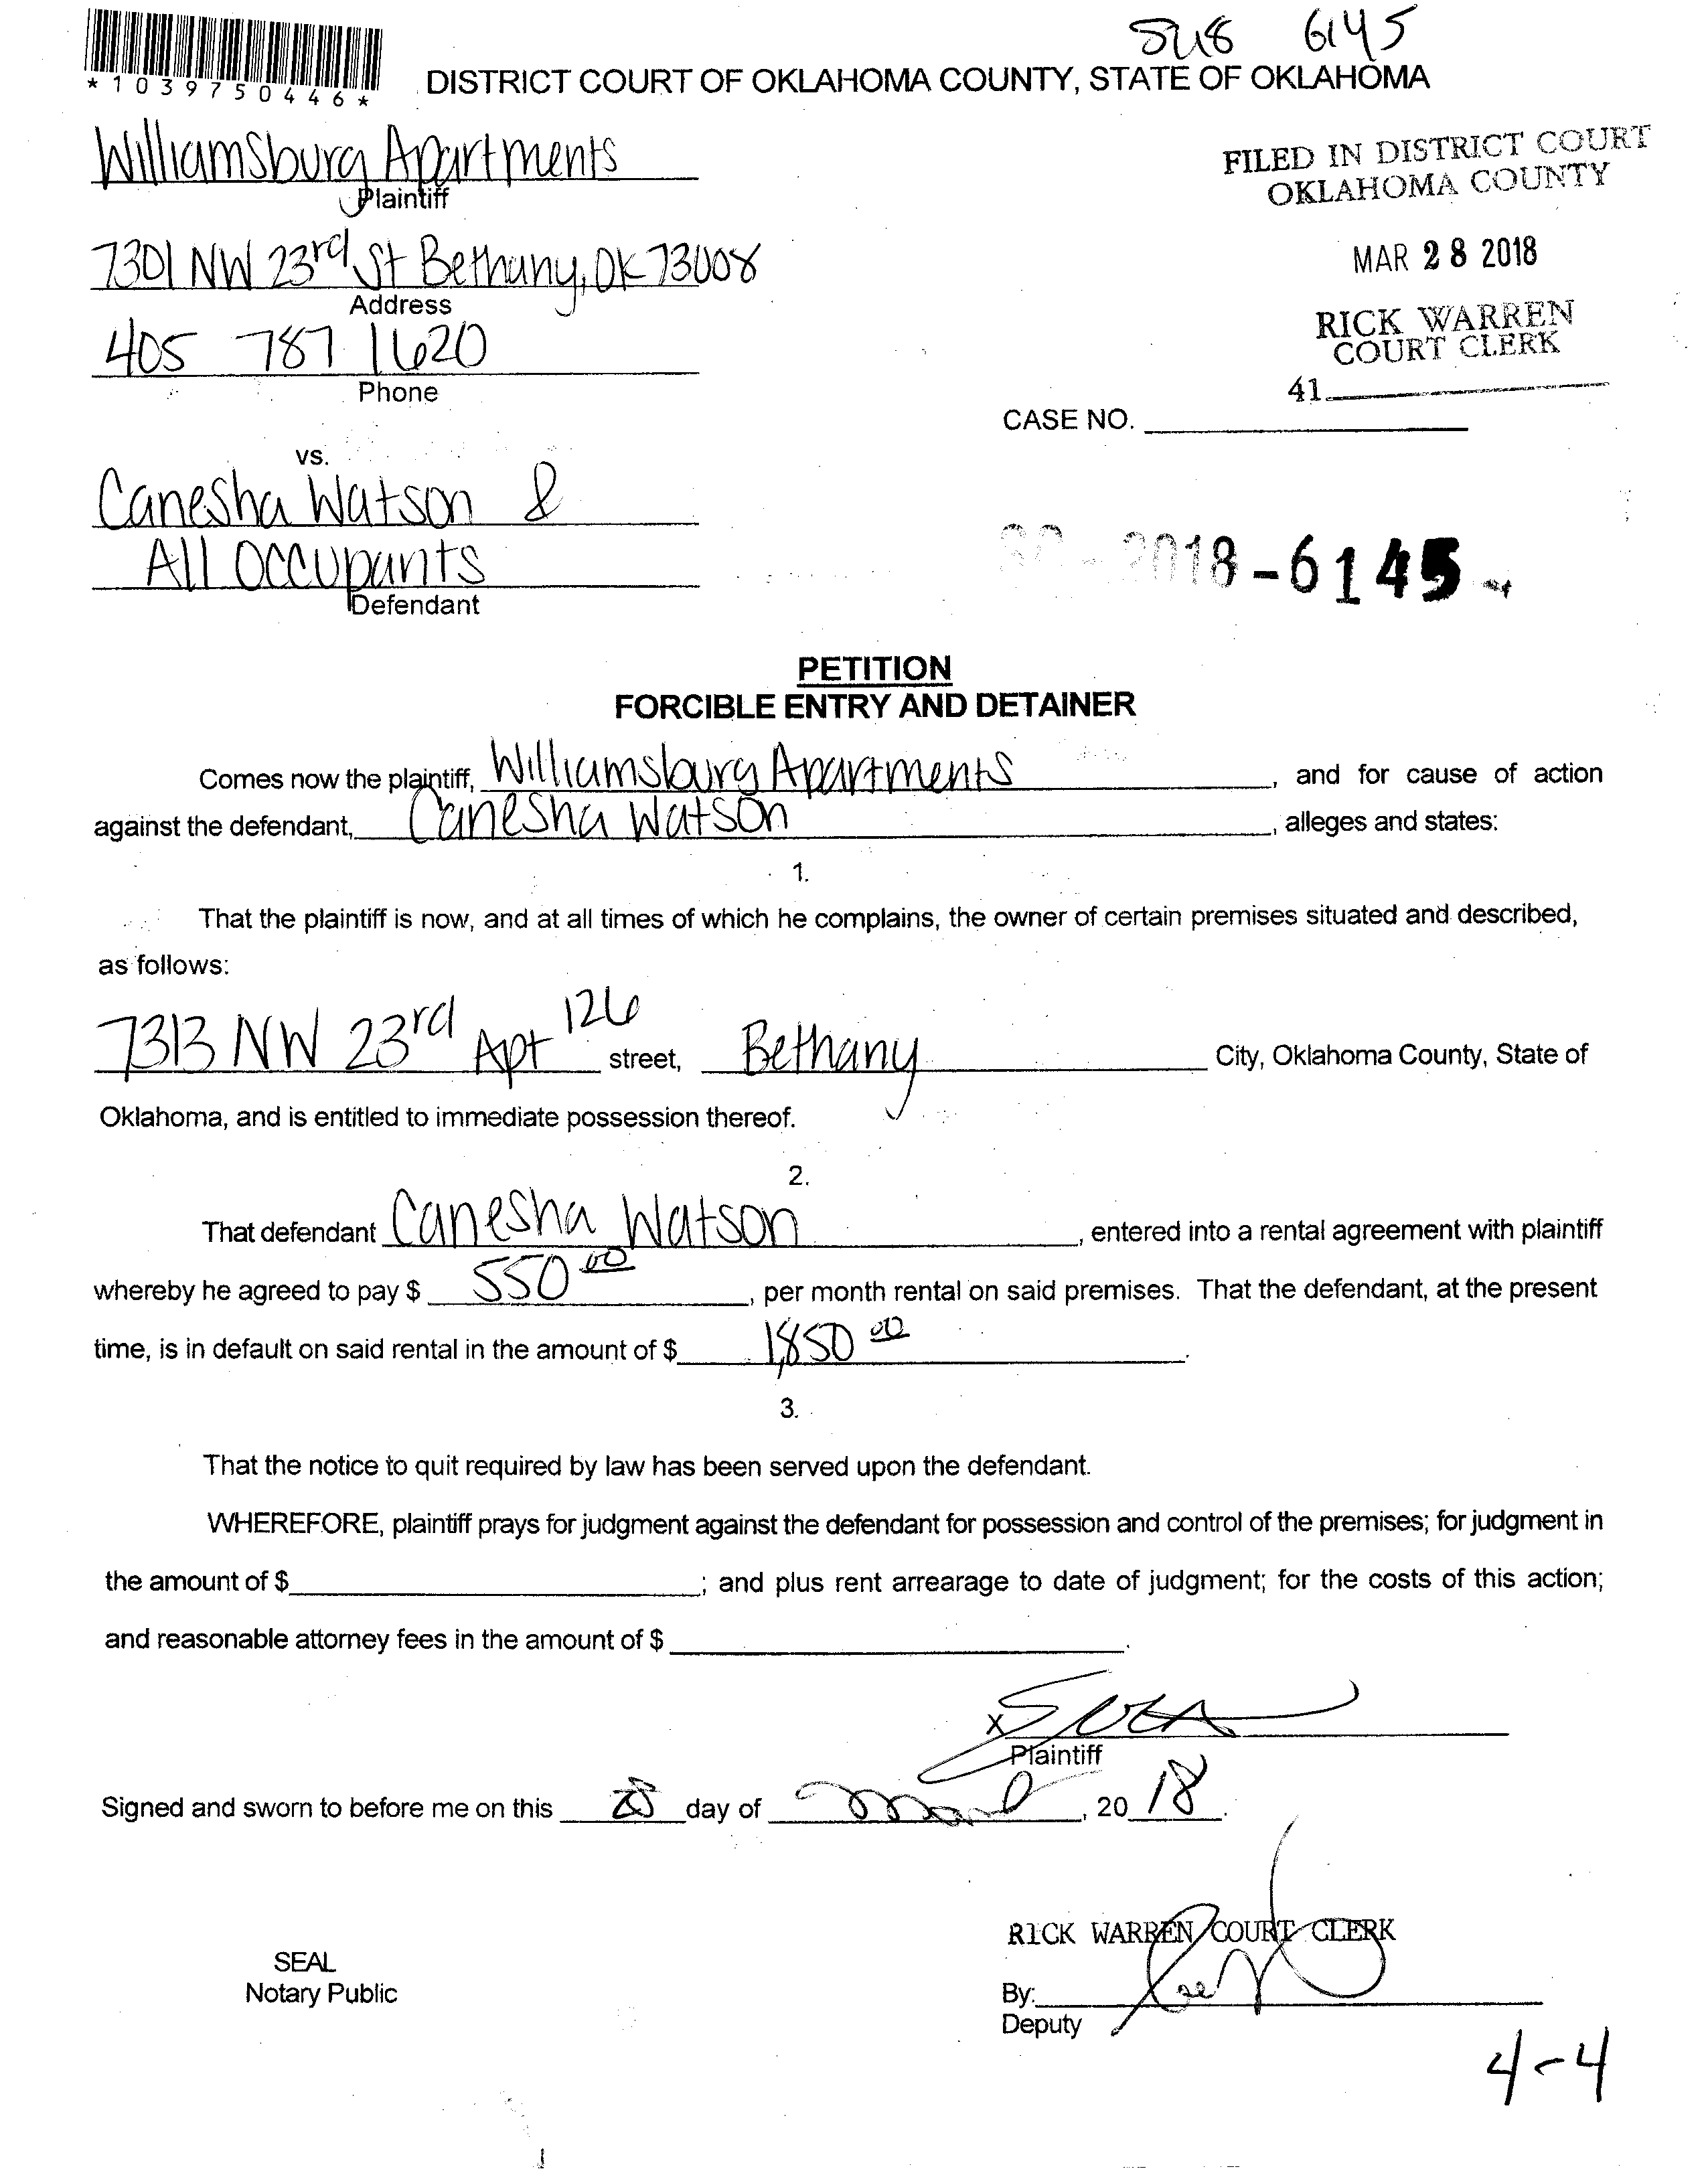 6145
*1039750446*
DISTRICT COURT OF OKLAHOMA COUNTY, STATE OF OKLAHOMA
Williamsburg Apartments
Plaintiff
FILED IN DISTRICT COURT
OKLAHOMA COUNTY
7301 NW 23rd St Bethany, OK 73008
Address
MAR 28 2018
405 787 1620
Phone
RICK WARREN
COURT CLERK
41
CASE NO.
vs.
Canesha Watson &
All Occupants
Defendant
SC-2018-6145
PETITION
FORCIBLE ENTRY AND DETAINER
Comes now the plaintiff, Williamsburg Apartments, and for cause of action
against the defendant, Canesha Watson, alleges and states:
1.
That the plaintiff is now, and at all times of which he complains, the owner of certain premises situated and described,
as follows:
7313 NW 23rd Apt 126 street, Bethany City, Oklahoma County, State of
Oklahoma, and is entitled to immediate possession thereof.
2.
That defendant Canesha Watson, entered into a rental agreement with plaintiff
whereby he agreed to pay $ 550 00, per month rental on said premises. That the defendant, at the present
time, is in default on said rental in the amount of $ 1,850 00.
3.
That the notice to quit required by law has been served upon the defendant.
WHEREFORE, plaintiff prays for judgment against the defendant for possession and control of the premises; for judgment in
the amount of $; and plus rent arrearage to date of judgment; for the costs of this action;
and reasonable attorney fees in the amount of $.
X
Plaintiff
Signed and sworn to before me on this 28 day of March, 2018.
RICK WARREN COURT CLERK
SEAL
Notary Public
By:
Deputy
4-4